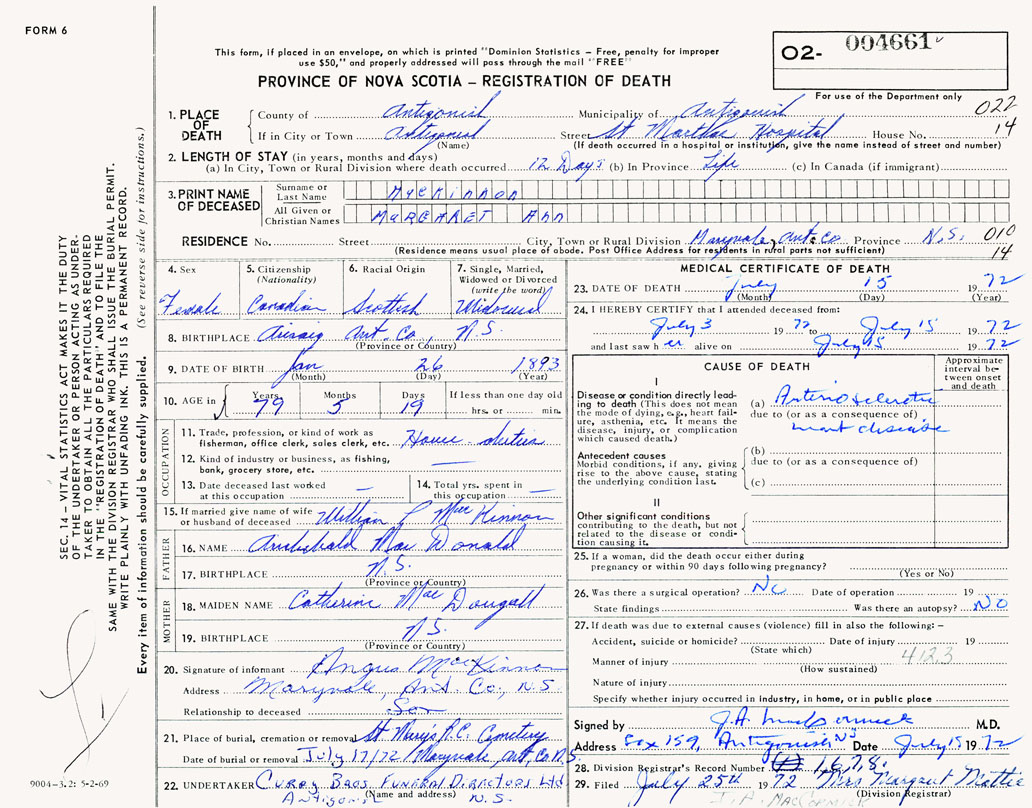 FORM 6
This form, if placed in an envelope, on which is printed "Dominion Statistics – Free, penalty for improper
use $50," and properly addressed will pass through the mail "FREE"
PROVINCE OF NOVA SCOTIA – REGISTRATION OF DEATH
O2- 004661
For use of the Department only
1. PLACE OF DEATH County of Antigonish Municipality of Antigonish 022
If in City or Town Antigonish Street St Marthas Hospital House No. 14
(Name) (If death occurred in a hospital or institution, give the name instead of street and number)
2. LENGTH OF STAY (in years, months and days)
(a) In City, Town or Rural Division where death occurred 12 Days (b) In Province Life (c) In Canada (if immigrant)
3. PRINT NAME OF DECEASED Surname or Last Name MacKinnon
All Given or Christian Names MARGARET Ann
RESIDENCE No. Street City, Town or Rural Division Maryvale, Ant. Co. Province N.S. 010
(Residence means usual place of abode. Post Office Address for residents in rural parts not sufficient) 14
4. Sex 5. Citizenship (Nationality) 6. Racial Origin 7. Single, Married, Widowed or Divorced (write the word)
Female Canadian Scottish Widowed
8. BIRTHPLACE Arisaig Ant. Co. N S
(Province or Country)
9. DATE OF BIRTH Jan 26 1893
(Month) (Day) (Year)
10. AGE in Years Months Days If less than one day old
79 5 19 hrs. or min.
OCCUPATION
11. Trade, profession, or kind of work as
fisherman, office clerk, sales clerk, etc. House-duties
12. Kind of industry or business, as fishing,
bank, grocery store, etc. —
13. Date deceased last worked
at this occupation —
14. Total yrs. spent in
this occupation —
15. If married give name of wife
or husband of deceased William MacKinnon
FATHER
16. NAME Archibald MacDonald
17. BIRTHPLACE N.S.
(Province or Country)
MOTHER
18. MAIDEN NAME Catherine MacDougall
19. BIRTHPLACE N.S.
(Province or Country)
20. Signature of informant Angus MacKinnon
Address Maryvale, Ant. Co., N.S.
Relationship to deceased Son
21. Place of burial, cremation or removal St Mary's R.C. Cemetery
Date of burial or removal July 17/72 Maryvale Ant. Co N.S.
22. UNDERTAKER Curry Bros Funeral Directors Ltd
(Name and address)
Antigonish N.S.
MEDICAL CERTIFICATE OF DEATH
23. DATE OF DEATH July 15 1972
(Month) (Day) (Year)
24. I HEREBY CERTIFY that I attended deceased from:
July 3 1972 to July 15 1972
and last saw her alive on July 15 1972
CAUSE OF DEATH
Approximate interval between onset and death
I
Disease or condition directly leading to death (This does not mean
the mode of dying, e.g., heart failure, asthenia, etc. It means the
disease, injury, or complication
which caused death.)
(a) Arteriosclerotic
due to (or as a consequence of)
heart disease
Antecedent causes
Morbid conditions, if any, giving
rise to the above cause, stating
the underlying condition last.
(b)
due to (or as a consequence of)
(c)
II
Other significant conditions
contributing to the death, but not
related to the disease or condition causing it.
25. If a woman, did the death occur either during
pregnancy or within 90 days following pregnancy?
(Yes or No)
26. Was there a surgical operation? No Date of operation 19
State findings Was there an autopsy? NO
27. If death was due to external causes (violence) fill in also the following: –
Accident, suicide or homicide? Date of injury 19
(State which)
Manner of injury 4123
(How sustained)
Nature of injury
Specify whether injury occurred in industry, in home, or in public place
Signed by J.A. MacCormick M.D.
Address Box 159, Antigonish NS Date July 15 1972
28. Division Registrar's Record Number 1678
29. Filed July 25th 1972 Mrs Margaret Mattie
(Division Registrar)
J. A. MacCORMICK
SEC. 14 – VITAL STATISTICS ACT MAKES IT THE DUTY
OF THE UNDERTAKER OR PERSON ACTING AS UNDER-
TAKER TO OBTAIN ALL THE PARTICULARS REQUIRED
IN THE "REGISTRATION OF DEATH" AND TO FILE THE
SAME WITH THE DIVISION REGISTRAR WHO SHALL ISSUE THE BURIAL PERMIT.
WRITE PLAINLY WITH UNFADING INK. THIS IS A PERMANENT RECORD.
Every item of information should be carefully supplied. (See reverse side for instructions.)
9004-3.2: 5-2-69